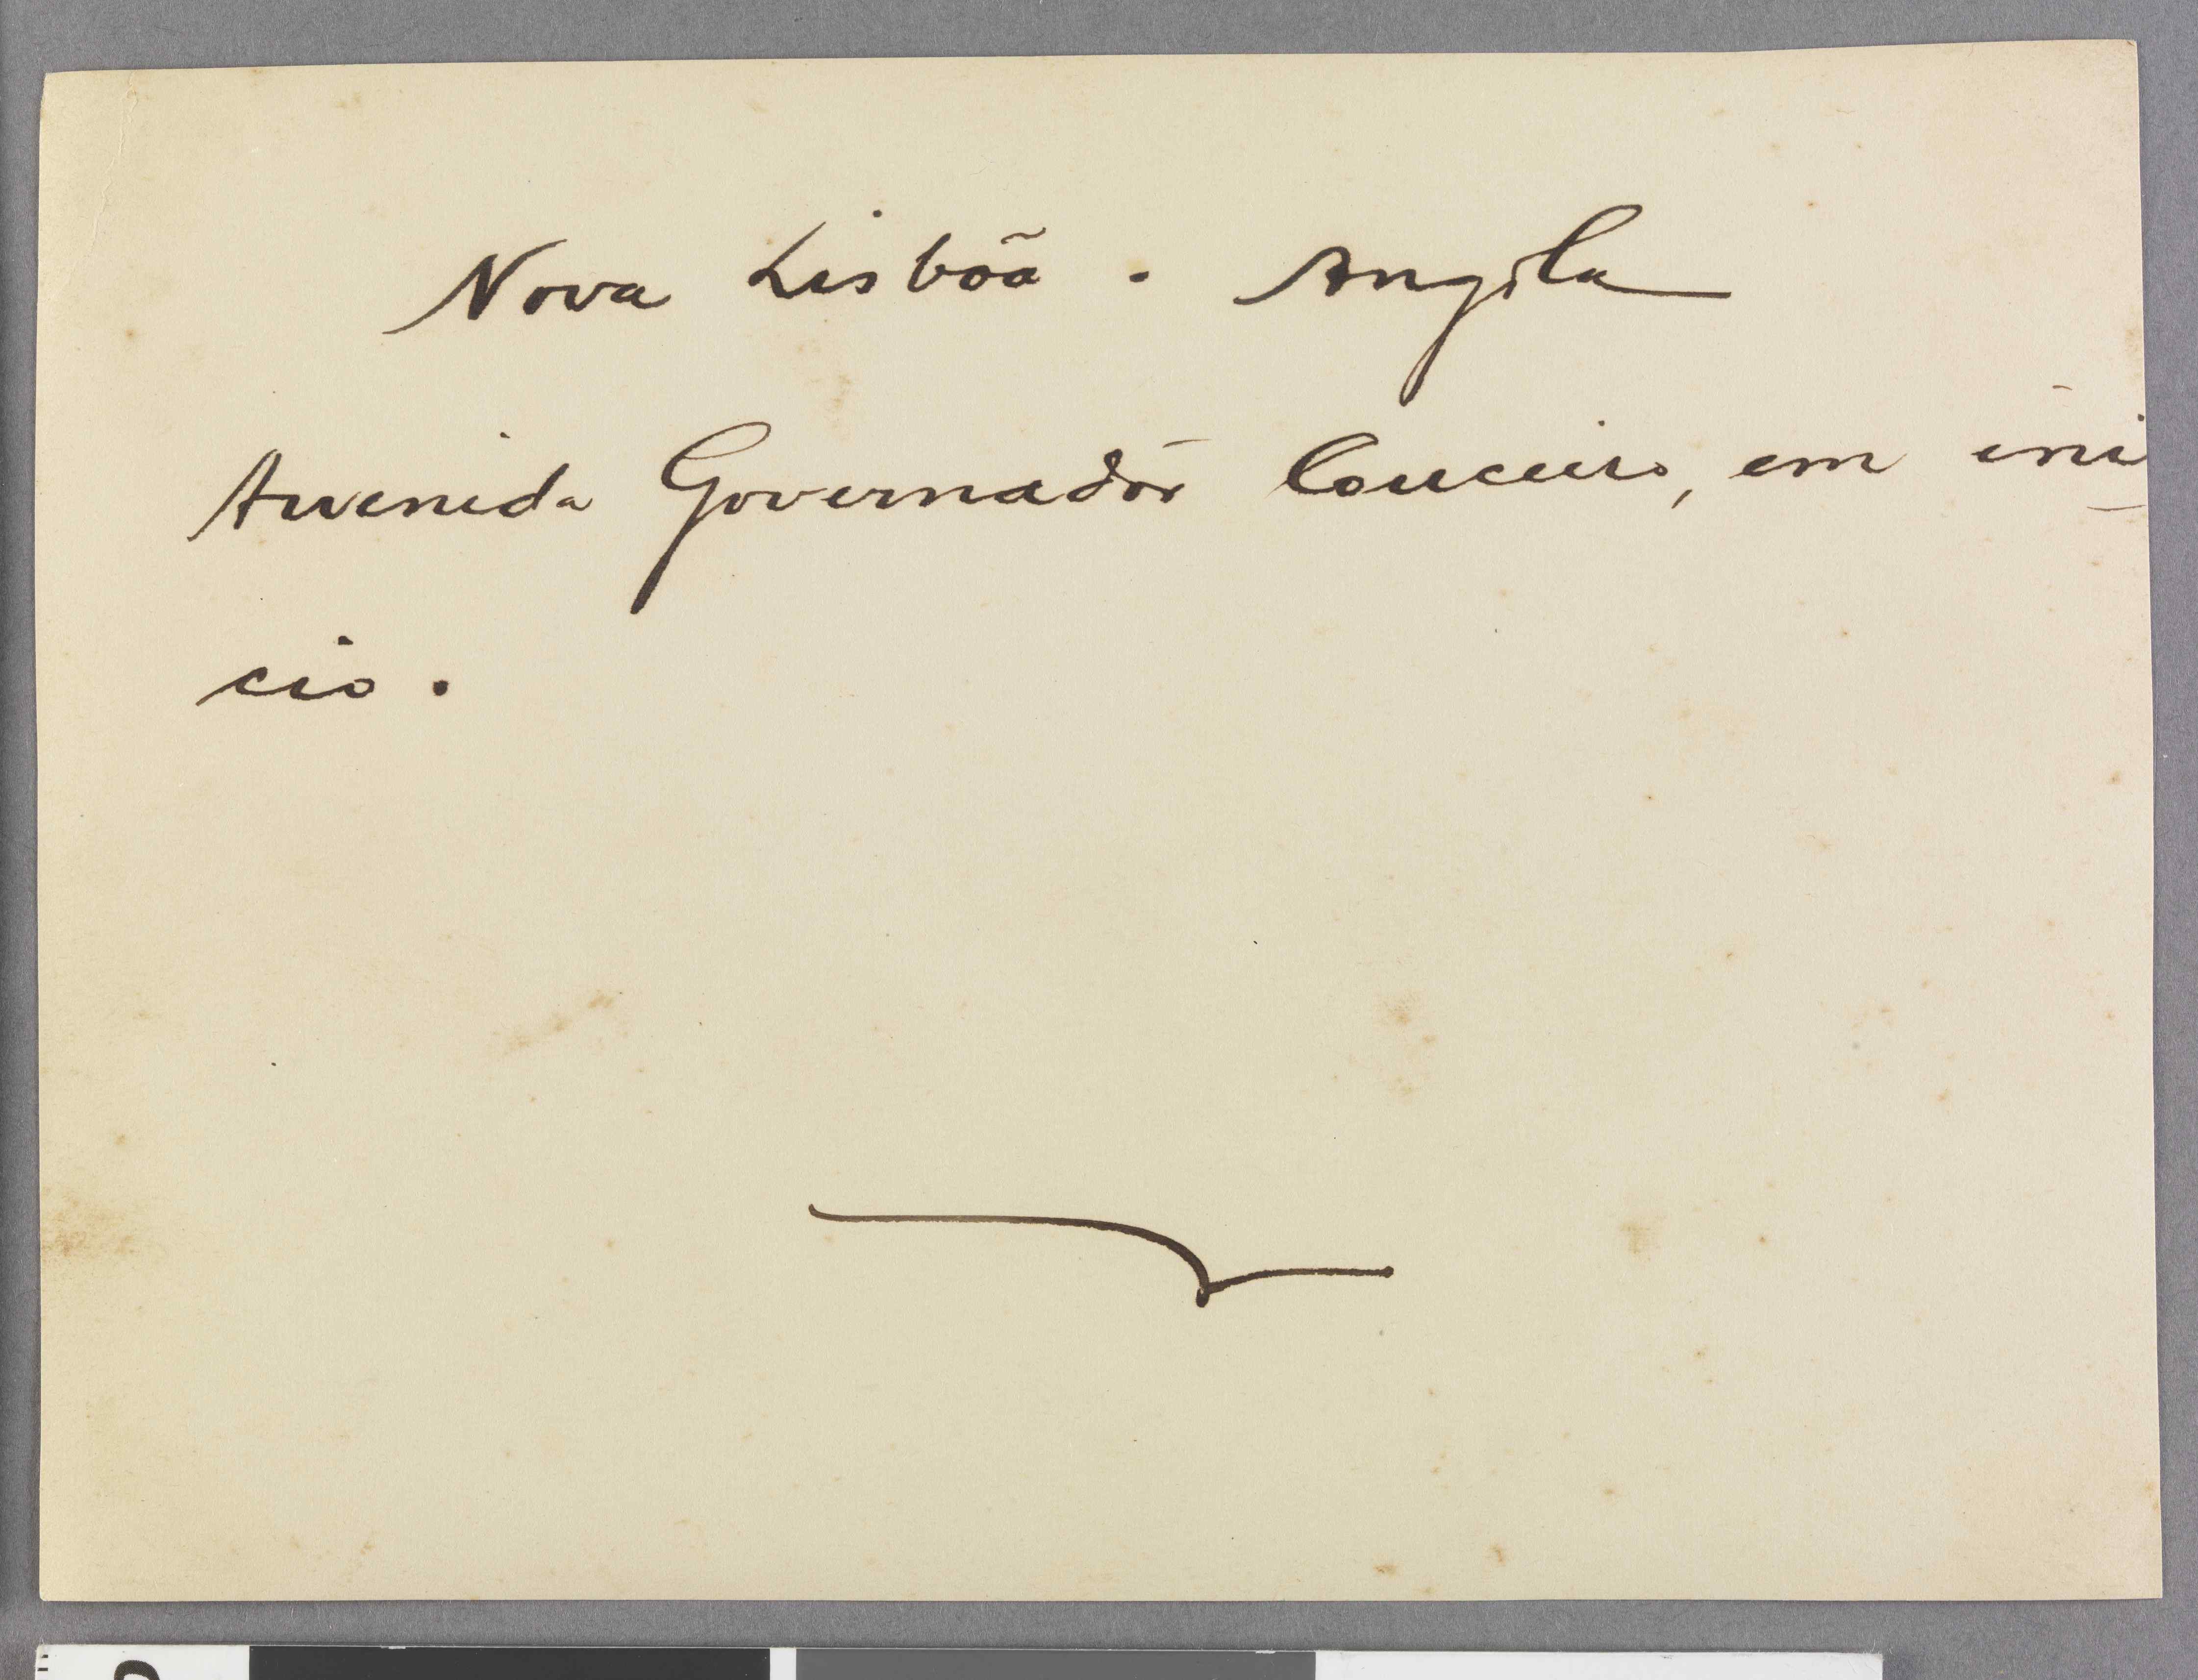 Nova Lisbôa . Angola
Avenida Governadôr Couceiro, em iní-
cio .